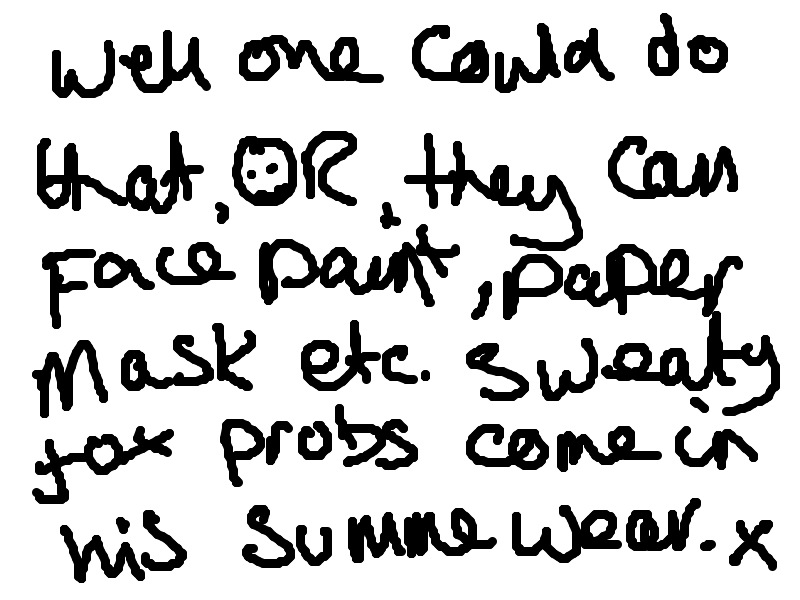 Well one could do
that, OR, they can
Face paint, paper
Mask etc. Sweaty
fox probs come in
his summe wear. x